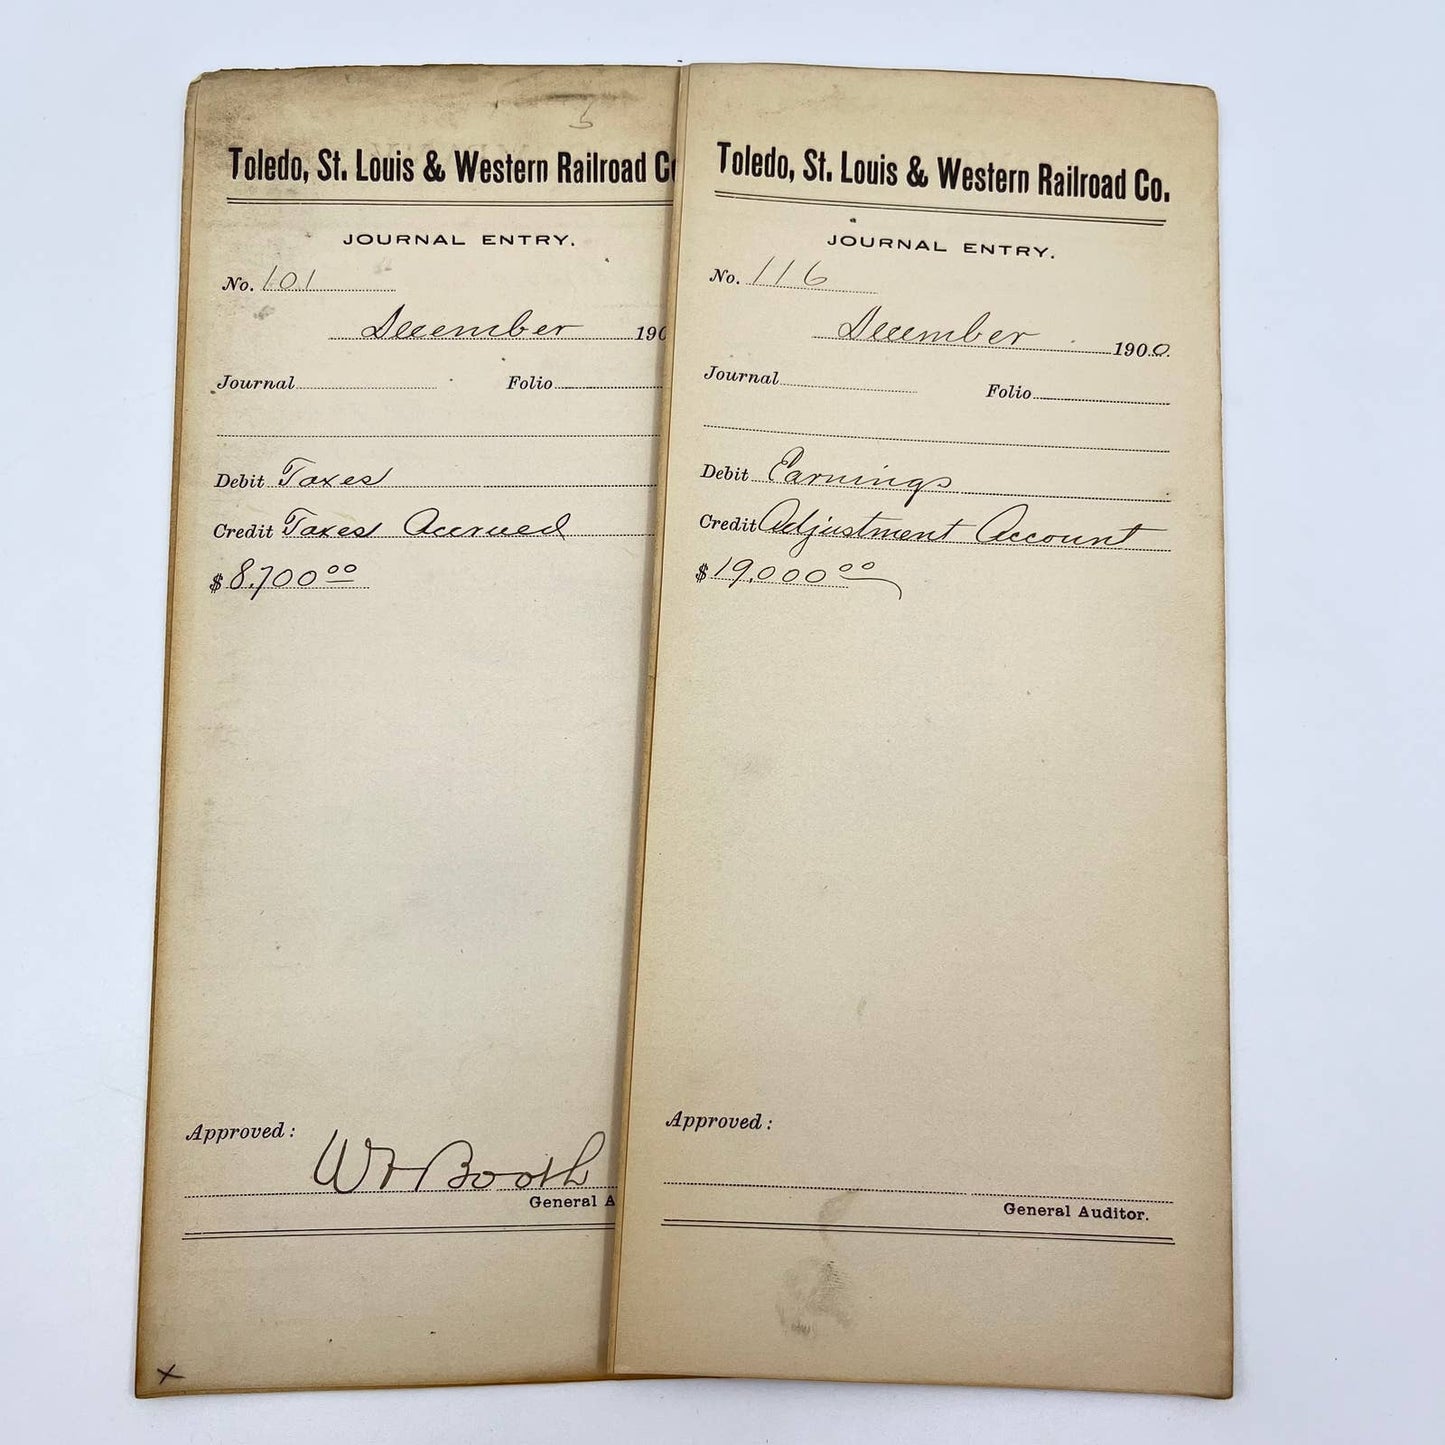 Toledo, St. Louis & Western Railroad Co
JOURNAL ENTRY.
No. 101
December 190
Journal Folio
Debit Taxes
Credit Taxes Accrued
$ 8,700 00
Approved:
Booth
General A
x
Toledo, St. Louis & Western Railroad Co.
JOURNAL ENTRY.
No. 116
December 1900.
Journal Folio
Debit Earnings
Credit Adjustment Account
$ 19,000 00
Approved:
General Auditor.